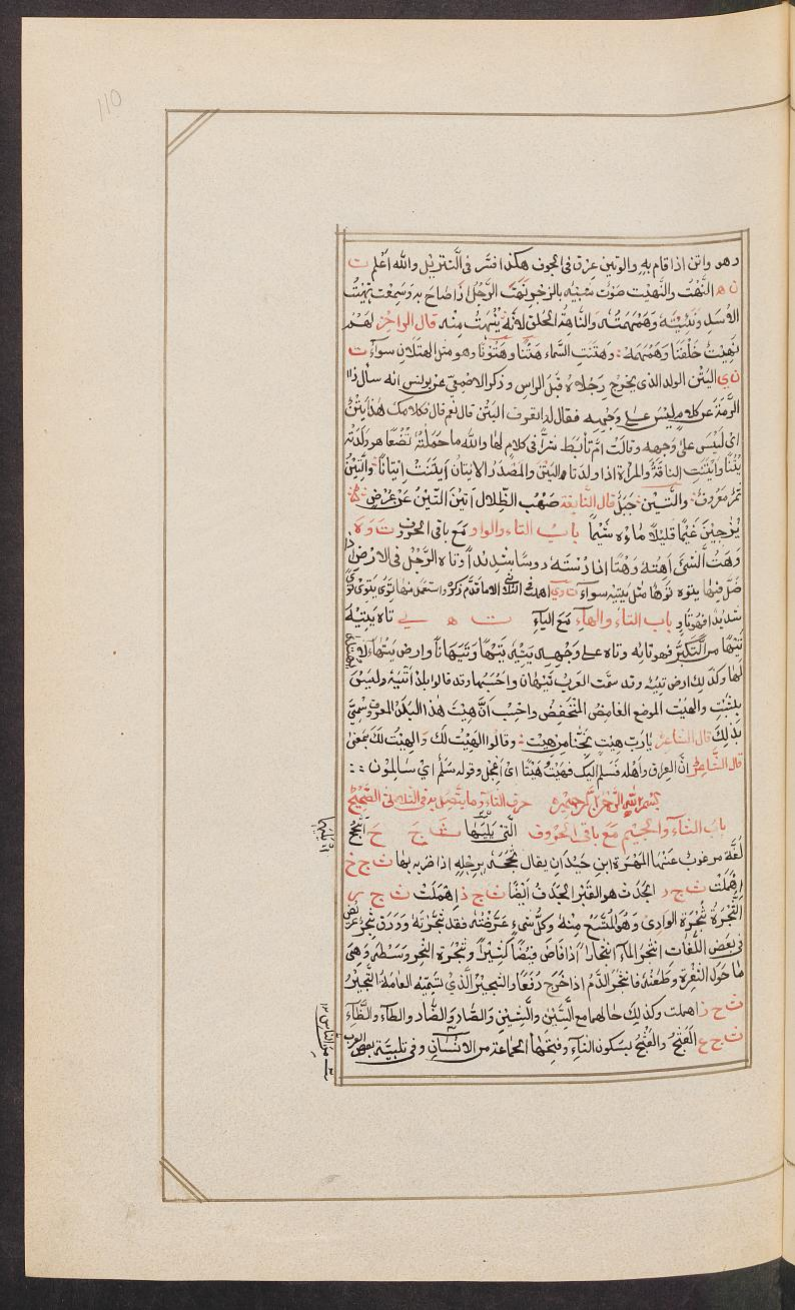 110
وهو واتن اذا قام به والوتين عرق في الجوف هكذا فسّر في التنزيل والله اعلم ت
ن ه النَّهْت والنَّهيت صوت شبيه بالزحير نَهَتَ الرّجُل اذا صاح به وسمعت نهيت
الاسد ونئيته وهَمْهَمَته والنّاهتُ الحلق لانّه يَنْهِت منه قال الراجز
نهيتُ خلقنا وهمهمه وهَتَنَتِ السّماء هَتْنًا وهُتُونًا وهو مثل الهتلان سواءٌ ت
ن ي اليَتْن الولد الذى يخرج رجلاه قبل الراس وذكر الاصمعيّ عن يونس انه سأل ذا
الرُّمّة عن كلام ليس على وجهه فقال له اتعرف اليَتْن قال نعم قال فكلامك هذا يَتْنٌ
اى ليس على وجهه وقالت امّ تأبّط شرّاً في كلام لها والله ما حملته تُضْعًا ولا ولدته
يَتْنًا وايتنت الناقة والمرأة اذا ولدتا اليتن والمصدر الايتان أيتنت ايتانًا والتين
ثمر معروف والتّين جبل قال النابغة صُهْب الظّلال أتين التّين عن عُرُضٍ
يُزْجين غيمًا قليلًا ماؤه شَبِمًا باب التاء والواو مع باقي الحروف ت و ه
وَهَتُّ الشيء أهِته وَهْتًا اذا دُسْته دوسًا شديدًا وتاه الرّجل في الارض اذا
ضلّ فيها يتوه تَوْهًا مثل يتيه سواء ت و ي اهملت
باب التاء والهاء مع الياء ت ه ي تاه يتيه
تيهًا من التكبّر فهو تائه وتاه على وجهه يتيه تيهًا وتَيَهانًا وارض تيهاء
لها وكذلك ارض تيه وقد سمّت العرب تَيْهان واحسبها وقد قالوا بلد أتْيَه وليس
بثبت والهيت الموضع الغامض المنخفض واحسب انّ هيت هذا البلد المعروف سمّي
بذلك قال الشاعر يا ربّ هيت نجّنا من هيت وقالوا الهَيْت لك والهِيت لك بمعنى
قال الشاعر انّ العراق واهله سَلَمٌ اليك فهَيْتَ هَيْتًا اى أعْجِل وقوله سلم اى سالمون
بسم الله الرحمن الرحيم حرف الثاء وما يتّصل به في الثلاثي الصّحيح
باب الثاء والجيم مع باقي الحروف التي يليها ث ج ح
لغة مرغوب عنها لمهرة ابن حيدان يقال ثحجه برجله اذا ضربه بها ث ج خ
اهملت ث ج د الجدث هو القبر الجدف ايضًا ث ج ذ اهملت ث ج ر
الثُّجرة ثُجرة الوادى وهو المتّسع منه وكلّ شيء عرّضته فقد ثجّرته وورق ثجر عريض
في بعض اللّغات انثجر الماء انثجارًا اذا فاض فيضًا كثيرًا وثُجرة النحر وسطه وهى
ما حول الثغرة وطعنه فانثجر الدّم اذا خرج دفعًا والثجير الذي تسمّيه العامّة التّجير
ث ج ز اهملت وكذلك حالهما مع السّين والشين والصّاد والضّاد والطاء والظّاء
ث ج ع العَثْج والعَثَج بسكون الثاء وفتحها الجماعة من الانسان وفى تلبية بعض العرب
من الناس